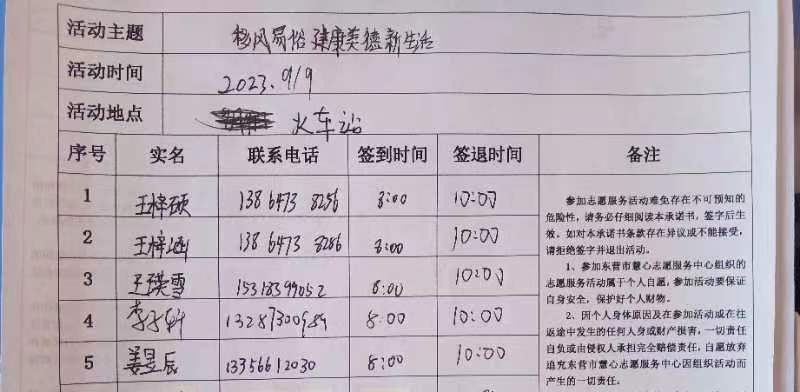 活动主题 移风易俗 健康美德新生活
活动时间 2023.9/9
活动地点 火车站
序号 实名 联系电话 签到时间 签退时间 备注
1 王梓硕 138 6473 8286 8:00 10:00
2 王梓涵 138 6473 8286 8:00 10:00
3 王瑛雪 15318399052 8:00 10:00
4 13287300989 8:00 10:00
5 姜昱辰 13356612030 8:00 10:00
参加志愿服务活动难免存在不可预知的
危险性,请务必仔细阅读本承诺书,签字后生
效。如对本承诺书条款存在异议或不能接受,
请拒绝签字并退出活动。
1、参加东营市慧心志愿服务中心组织的
志愿服务活动属于个人自愿,参加活动要保证
自身安全,保护好个人财物。
2、因个人身体原因及在参加活动或在往
返途中发生的任何人身或财产损害,一切责任
自负或由侵权人承担完全赔偿责任,自愿放弃
追究东营市慧心志愿服务中心因组织活动而
产生的一切责任。